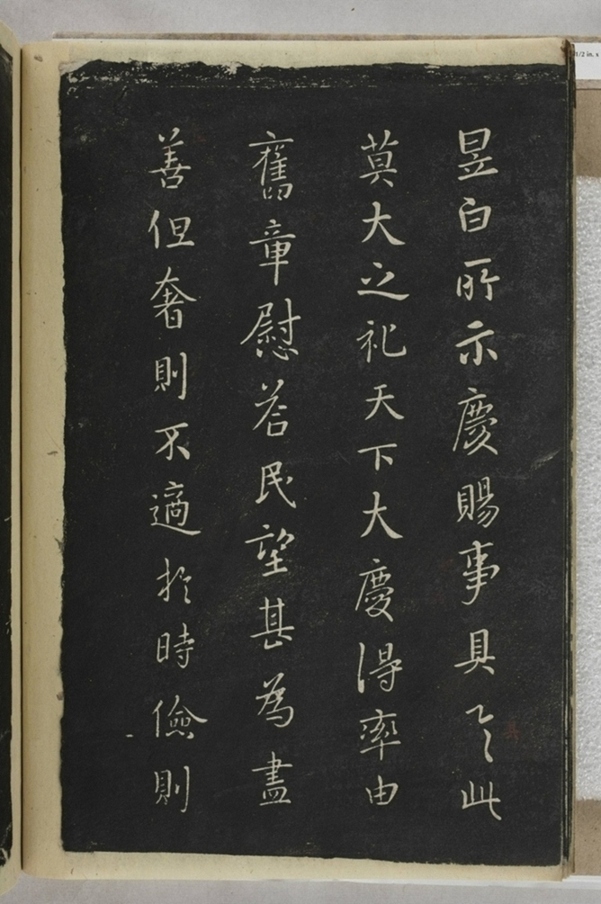 昱白所示慶賜事具之此
莫大之礼天下大慶得率由
舊章慰荅民望甚為盡
善但奢則不適於時儉則
1/2 in. x